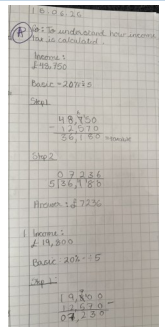 15.06.26
LO: To understand how income
tax is calculated
Income:
£48,750
Basic = 20% ÷ 5
Step 1
48,750
- 12,570
36,180
Step 2
07236
5 36,180
Answer: £7236
1 Income:
£19,800
Basic 20% ÷ 5
Step 1
19,800
12,570 -
07,230